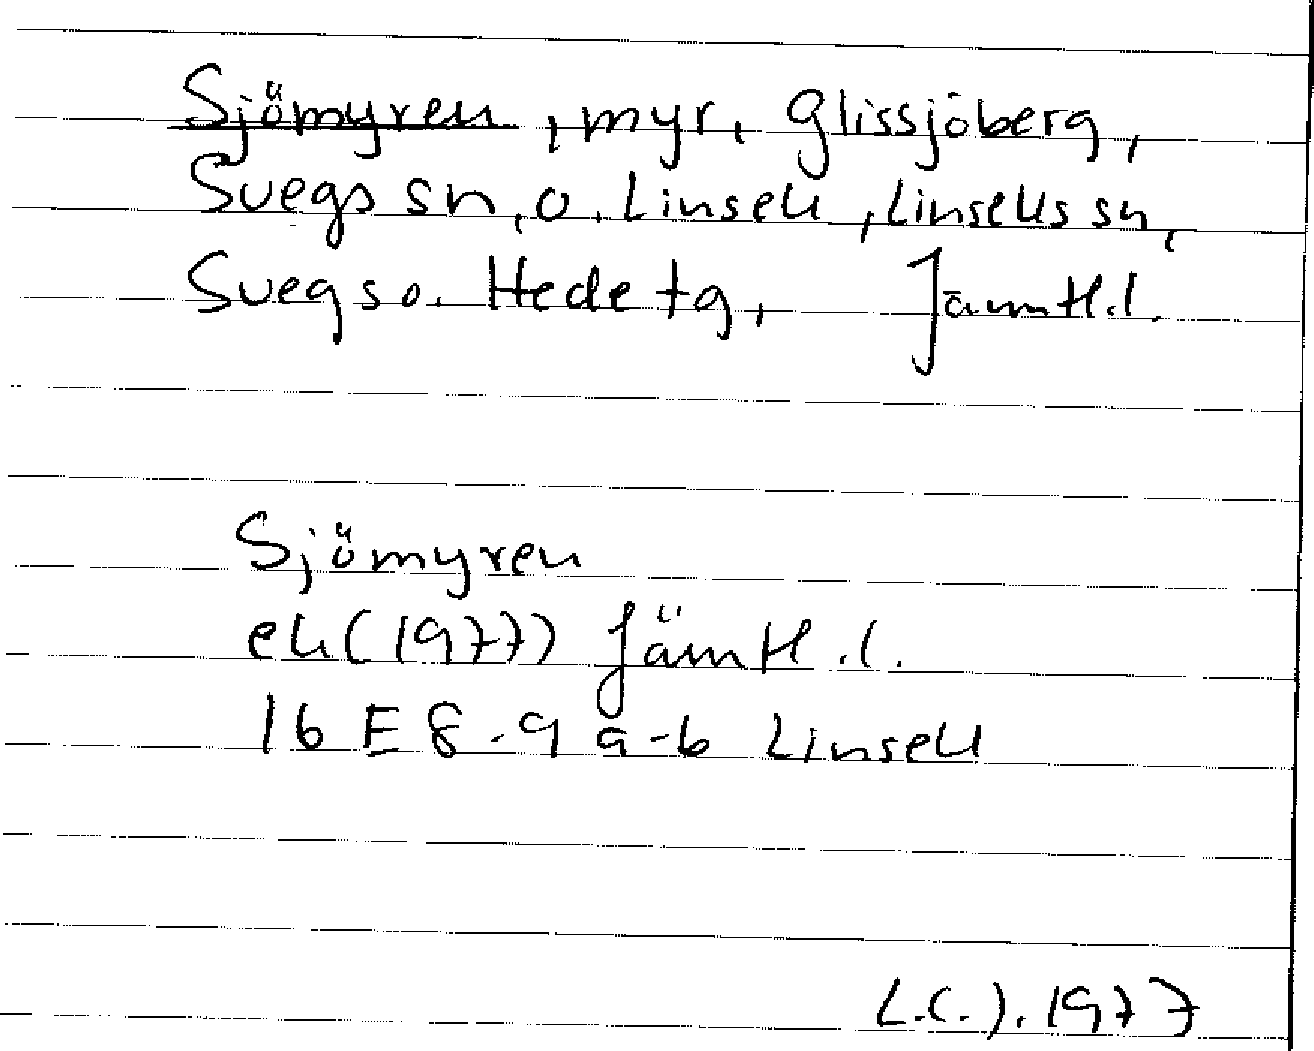 Sjömyren, myr, Glissjöberg,
Svegs sn, o. Linsell, Linsells sn,
Svegs o. Hede tg, Jämtl.l.
Sjömyren
ek (1977) Jämtl.l.
16 E 8-9 a-b Linsell
L.C.J. 1977